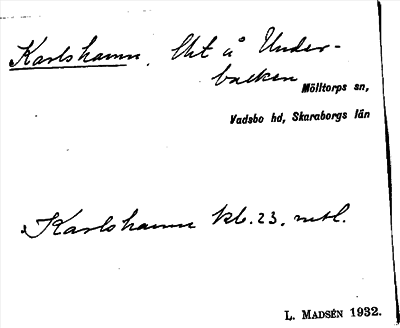 Karlshamn, Uht å Under-
backen
Mölltorps sn,
Vadsbo hd, Skaraborgs län
Karlshamn kb. 23. mtl.
L. MADSÉN 1932.